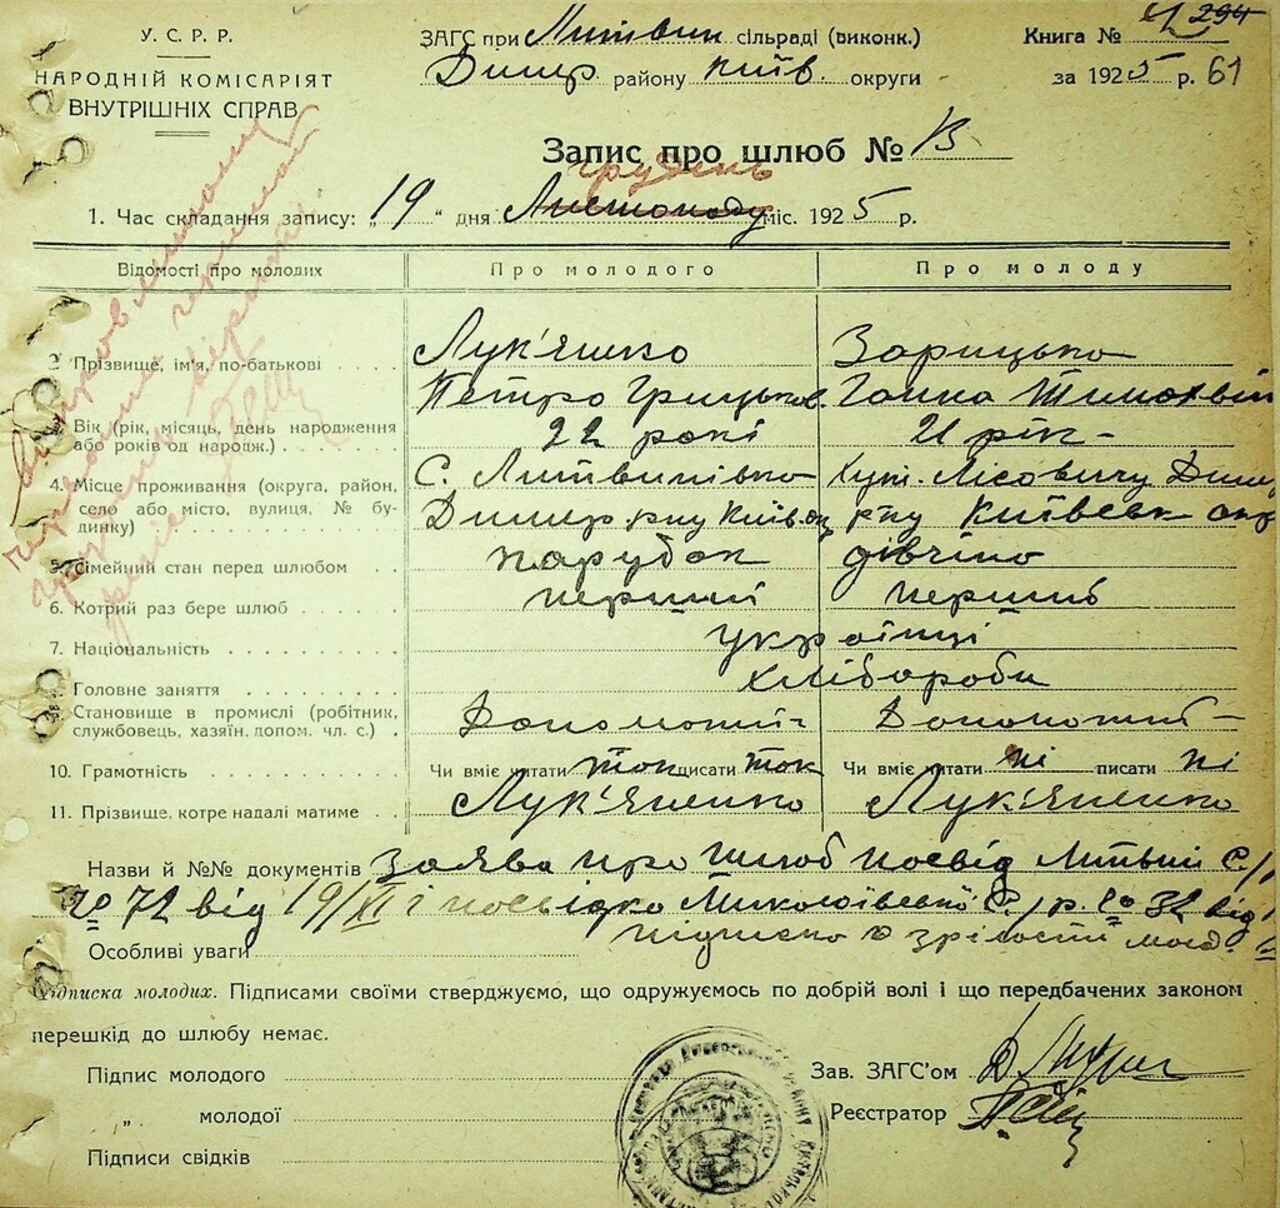 У.С.Р.Р.
НАРОДНІЙ КОМІСАРІЯТ
ВНУТРІШНІХ СПРАВ
ЗАГС при Литвин сільраді (виконк.)
Димер району Київ. округи
Книга № 294
за 1925 р. 61
Запис про шлюб № 13
грудень
1. Час складання запису: „19" дня Листопаду міс. 1925 р.
Відомості про молодих
Про молодого
Про молоду
2. Прізвище, ім'я, по-батькові
Лук'яненко
Петро Грицьков.
Зарицько
Ганна Тимохвій
3. Вік (рік, місяць, день народження або років од народж.)
22 рокі
21 рік
4. Місце проживання (округа, район, село або місто, вулиця, № будинку)
С. Литвинівка
Димер. р-ну Київ. ок
Хут. Лісовичу Димер
р-ну Київськ окр
5. Сімейний стан перед шлюбом
парубок
дівчіна
6. Котрий раз бере шлюб
перший
перший
7. Національність
українці
8. Головне заняття
хлібороби
9. Становище в промислі (робітник, службовець, хазяїн, допом. чл. с.)
10. Грамотність
Чи вміє читати так писати так
Чи вміє читати ні писати ні
11. Прізвище, котре надалі матиме
Лук'яненко
Лук'яненко
Назви й №№ документів Заява про шлюб посвід Литвин С/
№ 72 від 19/XI і посвідка С./р. № 32 від
Особливі уваги
підписка о зрілости молод.
Підписка молодих. Підписами своїми стверджуємо, що одружуємось по добрій волі і що передбачених законом
перешкід до шлюбу немає.
Підпис молодого
„ молодої
Підписи свідків
Зав. ЗАГС'ом
Реєстратор